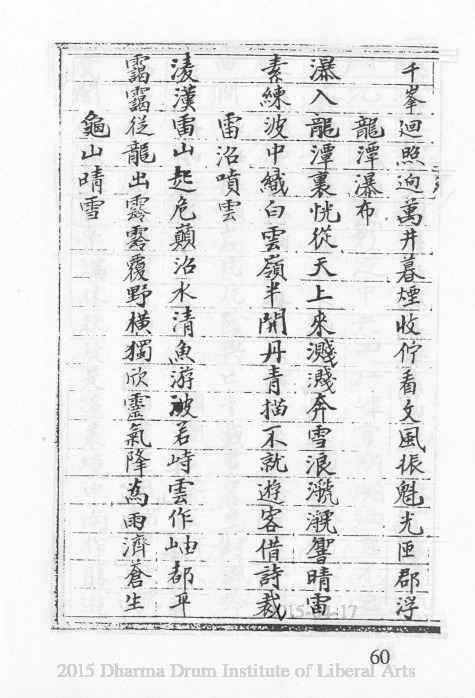 千峯迴照逈萬井暮煙收佇看文風振魁光匝郡浮
龍潭瀑布
瀑入龍潭裏恍從天上來濺濺奔雪浪㶁㶁響晴雷
素練波中織白雲嶺半開丹青描不就遊客借詩裁
雷沼噴雲
淩漢雷山起危巔沼水清魚游波若峙雲作岫都平
靄靄從龍出霱霱覆野橫獨欣靈氣降為雨濟蒼生
龜山晴雪
60
2015 Dharma Drum Institute of Liberal Arts